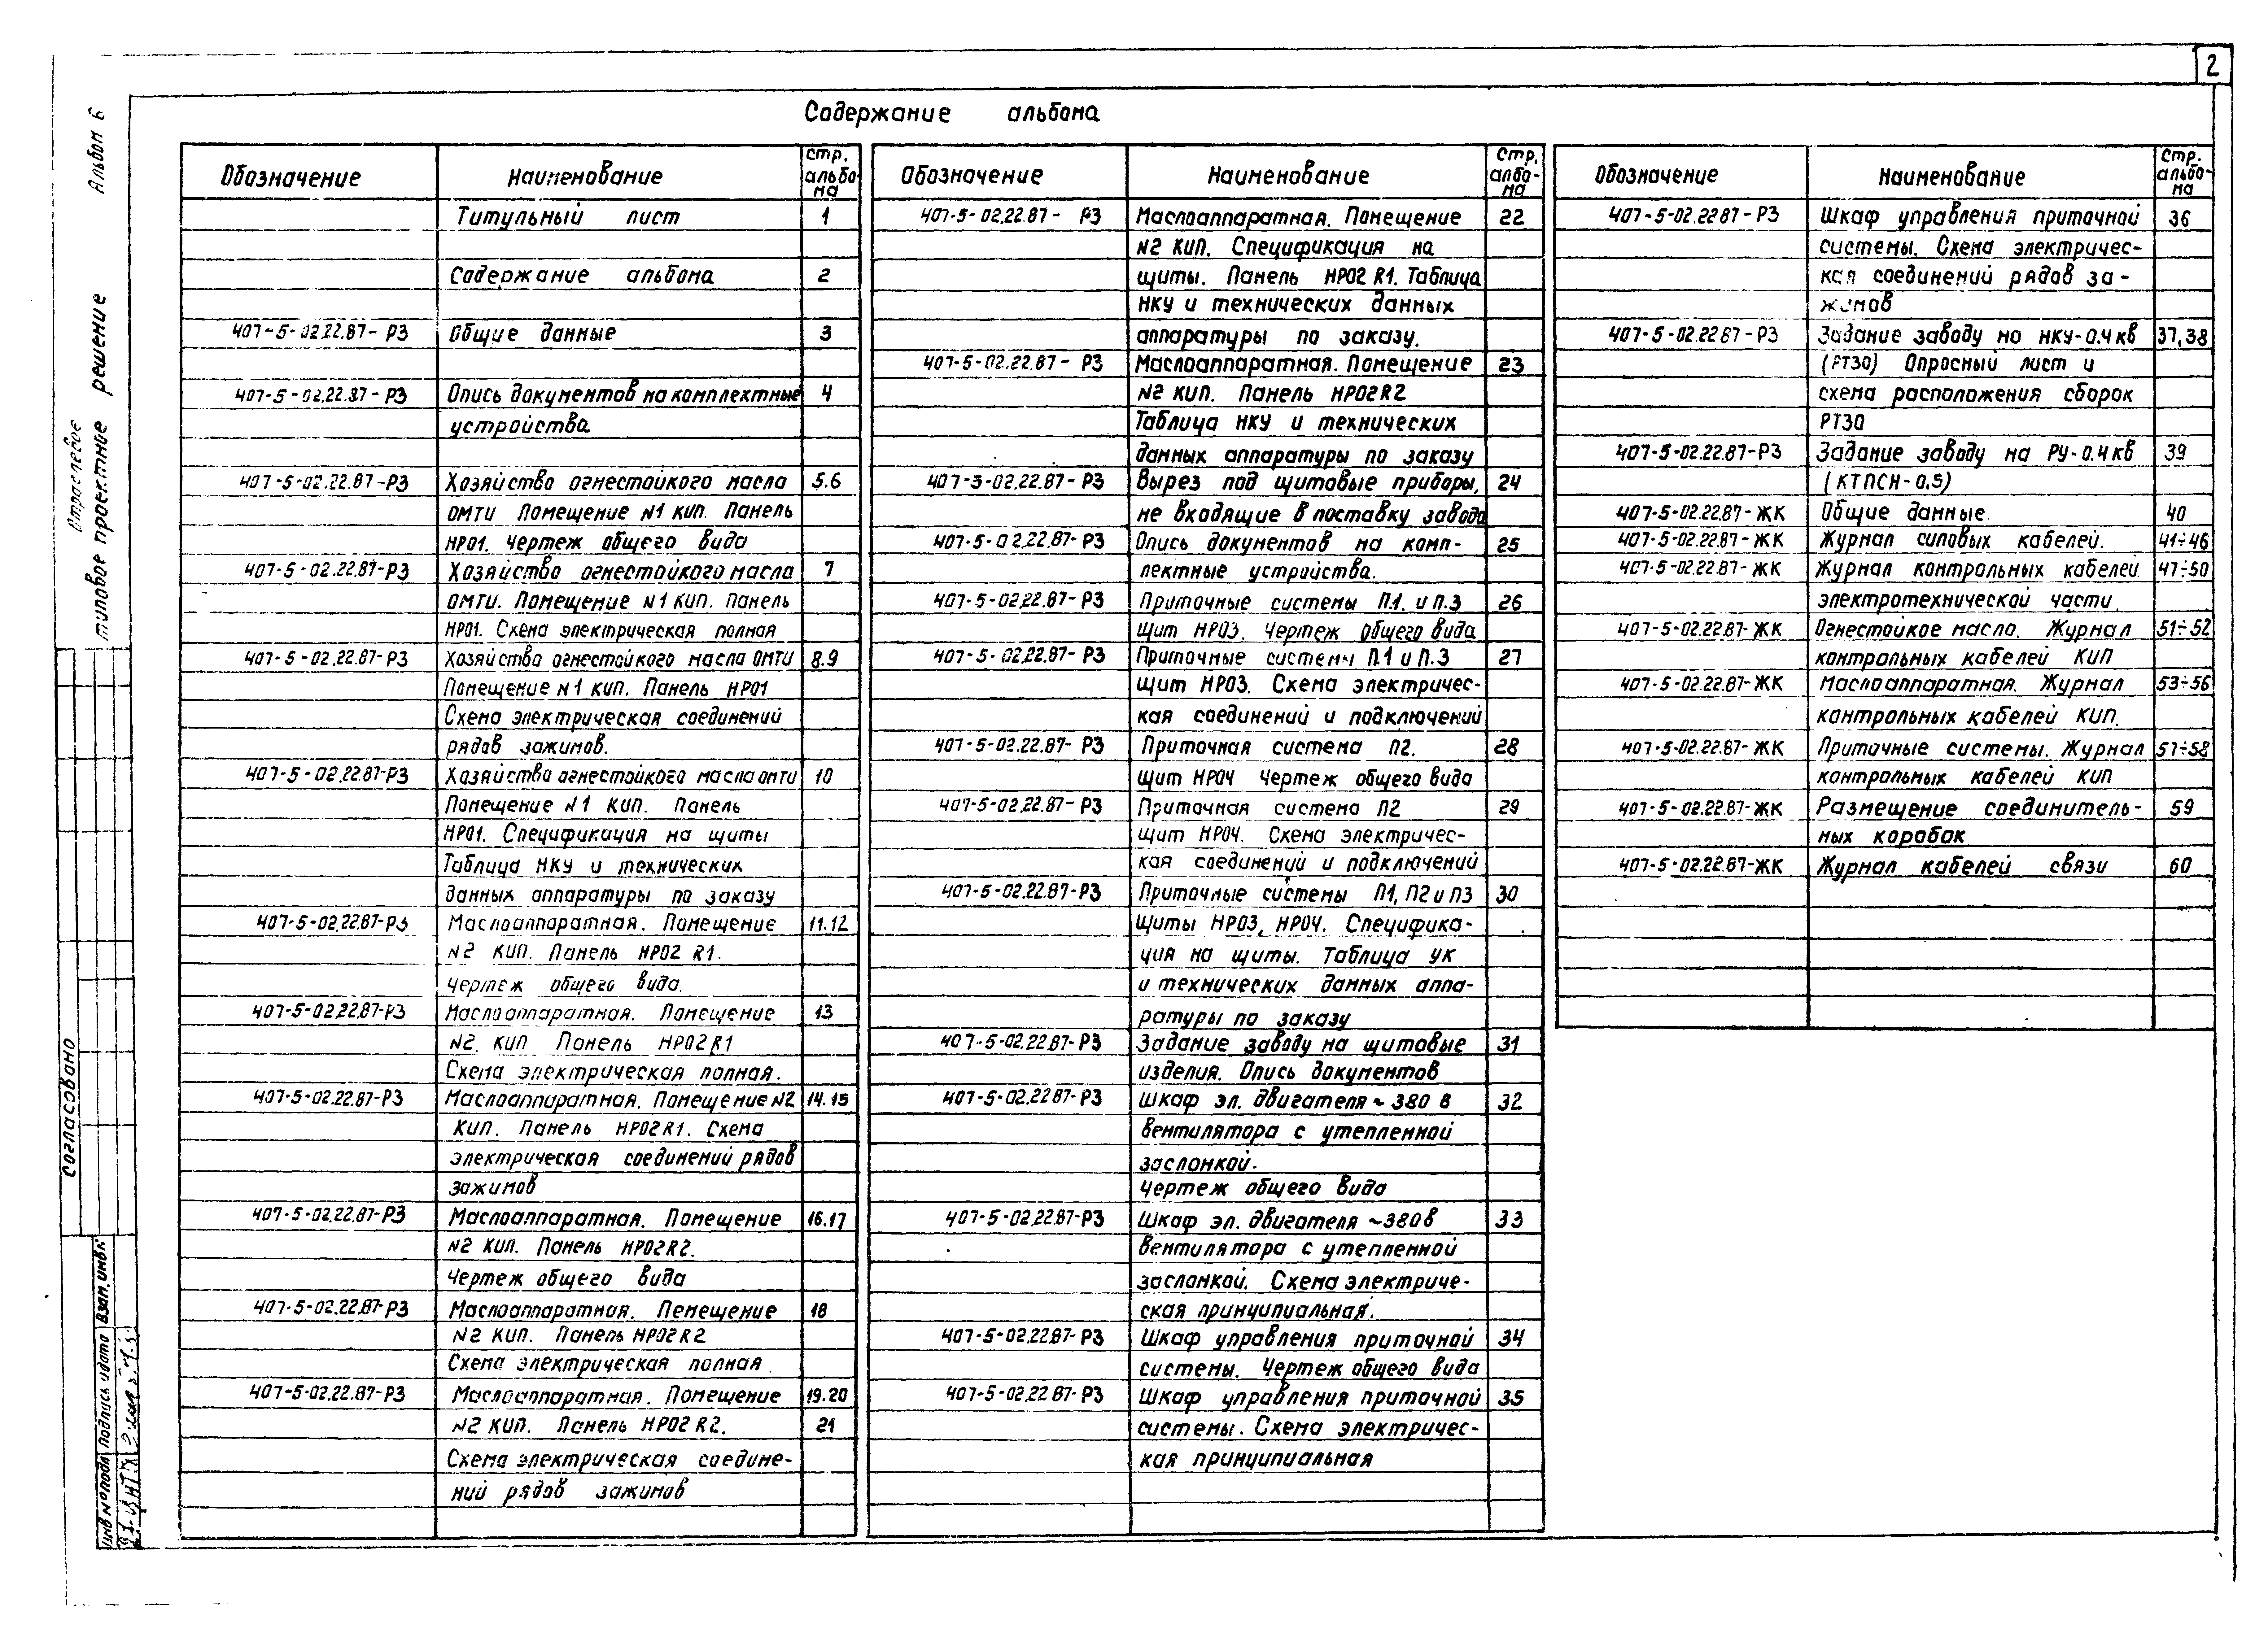 2
Содержание альбома
Альбом 6
Отраслевое
типовое проектное решение
Согласовано
Взам.инв№
Подпись и дата
Инв№подл
Обозначение Наименование Стр. альбо- ма
Титульный лист 1
Содержание альбома 2
407-5-02.22.87-РЗ Общие данные 3
407-5-02.22.87-РЗ Опись документов на комплектные 4
устройства
407-5-02.22.87-РЗ Хозяйство огнестойкого масла 5.6
ОМТИ Помещение N1 КИП. Панель
НР01. Чертеж общего вида
407-5-02.22.87-РЗ Хозяйство огнестойкого масла 7
ОМТИ. Помещение N1 КИП. Панель
НР01. Схема электрическая полная
407-5-02.22.87-РЗ Хозяйство огнестойкого масла ОМТИ 8.9
Помещение N1 КИП. Панель НР01
Схема электрическая соединений
рядов зажимов.
407-5-02.22.87-РЗ Хозяйство огнестойкого масла ОМТИ 10
Помещение N1 КИП. Панель
НР01. Спецификация на щиты
Таблица НКУ и технических
данных аппаратуры по заказу
407-5-02.22.87-РЗ Маслоаппаратная. Помещение 11.12
N2 КИП. Панель НР02 R1.
Чертеж общего вида.
407-5-02.22.87-РЗ Маслоаппаратная. Помещение 13
N2. КИП Панель НР02 R1
Схема электрическая полная.
407-5-02.22.87-РЗ Маслоаппаратная. Помещение N2 14.15
КИП. Панель НР02R1. Схема
электрическая соединений рядов
зажимов
407-5-02.22.87-РЗ Маслоаппаратная. Помещение 16.17
N2 КИП. Панель НР02R2.
Чертеж общего вида
407-5-02.22.87-РЗ Маслоаппаратная. Пемещение 18
N2 КИП. Панель НР02R2
Схема электрическая полная.
407-5-02.22.87-РЗ Маслоаппаратная. Помещение 19.20
N2 КИП. Панель НР02 R2. 21
Схема электрическая соедине-
ний рядов зажимов
Обозначение Наименование Стр. албо- ма
407-5-02.22.87- РЗ Маслоаппаратная. Помещение 22
N2 КИП. Спецификация на
щиты. Панель НР02 R1. Таблица
НКУ и технических данных
аппаратуры по заказу.
407-5-02.22.87- РЗ Маслоаппаратная. Помещение 23
N2 КИП. Панель НР02R2
Таблица НКУ и технических
данных аппаратуры по заказу
407-5-02.22.87- РЗ Вырез под щитовые приборы, 24
не входящие в поставку завода
407-5-02.22.87- РЗ Опись документов на комп- 25
лектные устройства.
407-5-02.22.87- РЗ Приточные системы П.1. и П.3 26
Щит НР03. Чертеж общего вида
407-5-02.22.87- РЗ Приточные системы П.1 и П.3 27
Щит НР03. Схема электричес-
кая соединений и подключений
407-5-02.22.87- РЗ Приточная система П2. 28
Щит НР04 Чертеж общего вида
407-5-02.22.87- РЗ Приточная система П2 29
Щит НР04. Схема электричес-
кая соединений и подключений
407-5-02.22.87-РЗ Приточные системы П1, П2 и П3 30
Щиты НР03, НР04. Специфика-
ция на щиты. Таблица УК
и технических данных аппа-
ратуры по заказу
407-5-02.22.87- РЗ Задание заводу на щитовые 31
изделия. Опись документов
407-5-02.22.87- РЗ Шкаф эл. двигателя ~ 380 в 32
вентилятора с утепленной
заслонкой.
Чертеж общего вида
407-5-02.22.87-РЗ Шкаф эл. двигателя ~380в 33
вентилятора с утепленной
заслонкой. Схема электриче-
ская принципиальная.
407-5-02.22.87- РЗ Шкаф управления приточной 34
системы. Чертеж общего вида
407-5-02.22.87- РЗ Шкаф управления приточной 35
системы. Схема электричес-
кая принципиальная
Обозначение Наименование Стр. альбо- ма
407-5-02.22.87-РЗ Шкаф управления приточной 36
системы. Схема электричес-
кая соединений рядов за-
жимов
407-5-02.22.87-РЗ Задание заводу на НКУ-0.4 кв 37,38
(РТ30) Опросный лист и
схема расположения сборок
РТ30
407-5-02.22.87-РЗ Задание заводу на РУ-0.4 кв 39
(КТПСН-0.5)
407-5-02.22.87-ЖК Общие данные. 40
407-5-02.22.87-ЖК Журнал силовых кабелей. 41÷46
407-5-02.22.87-ЖК Журнал контрольных кабелей 47÷50
электротехнической части.
407-5-02.22.87-ЖК Огнестойкое масло. Журнал 51÷52
контрольных кабелей КИП
407-5-02.22.87-ЖК Маслоаппаратная. Журнал 53÷56
контрольных кабелей КИП.
407-5-02.22.87-ЖК Приточные системы. Журнал 57÷58
контрольных кабелей КИП
407-5-02.22.87-ЖК Размещение соединитель- 59
ных коробак
407-5-02.22.87-ЖК Журнал кабелей связи 60